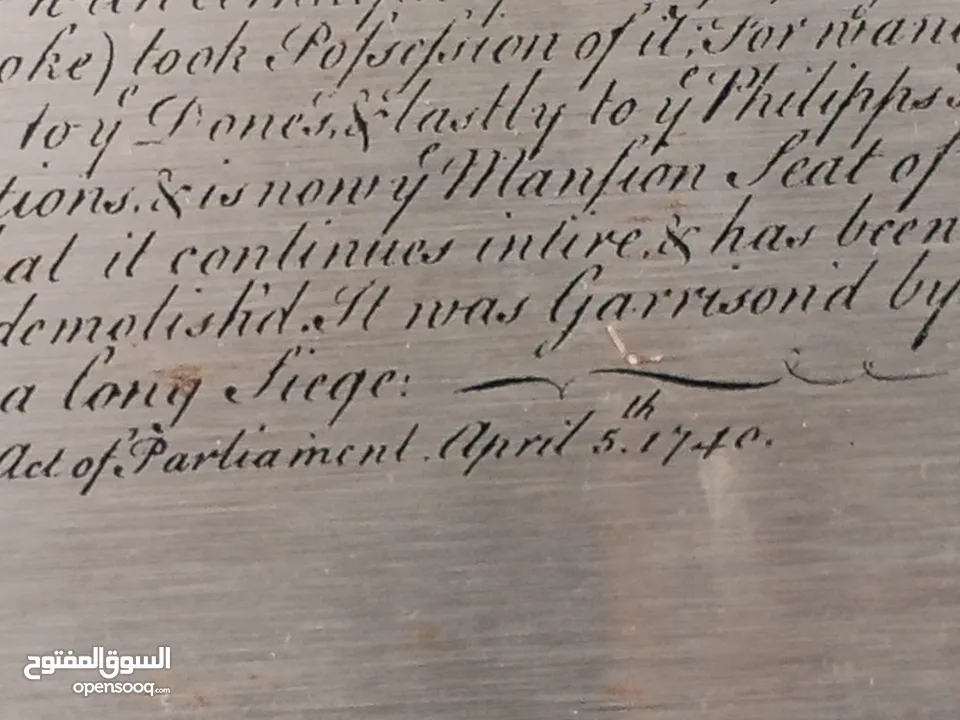 oke) took Poſseſsion of it; For man
to yͤ Dones, & lastly to yͤ Philipps's
tions, & is now yͤ Manſion Seat of
at it continues intire, & has been
demolish'd. It was Garrison'd by
a long Siege:
Act of Parliament. April 5.th 1740.
السوق المفتوح
opensooq.com